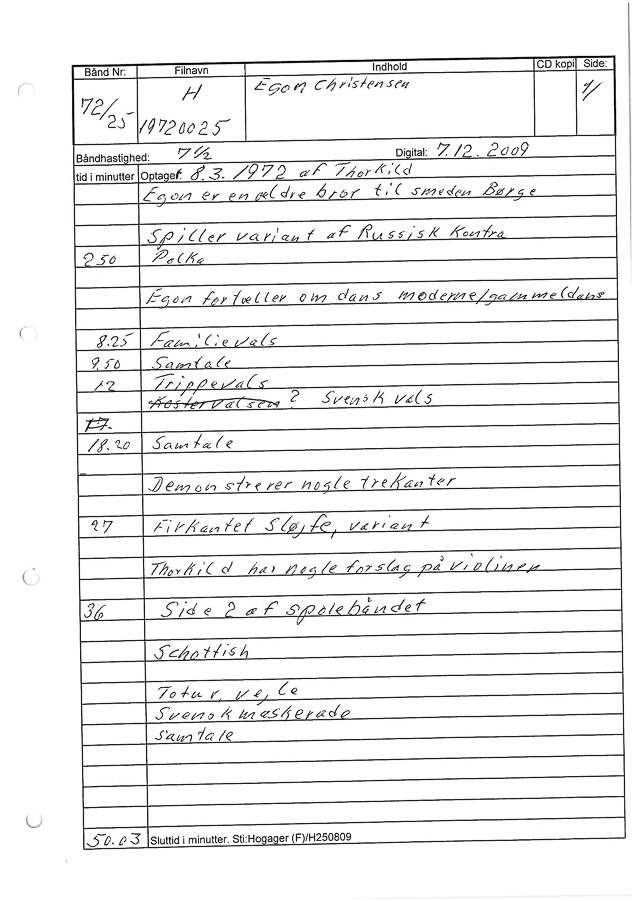 Bånd Nr: Filnavn Indhold CD kopi Side:
72/25 H Egon Christensen 1/
19720025
Båndhastighed: 7½ Digital: 7.12.2009
tid i minutter Optaget: 8.3.1972 af Thorkild
Egon er en ældre bror til smeden Børge
Spiller variant af Russisk Kontra
2.50 Polka
Egon fortæller om dans moderne/gammeldans
8.25 Familievals
9.50 Samtale
12 Trippevals
Kostervalsen? Svensk vals
17.
18.20 Samtale
Demonstrerer nogle trekanter
27 Firkantet Sløjfe, variant
Thorkild har nogle forslag på violinen
36 Side 2 af spolebåndet
Schottish
Totur, vejle
Svenskmaskerade
Samtale
50.03 Sluttid i minutter. Sti:Hogager (F)/H250809